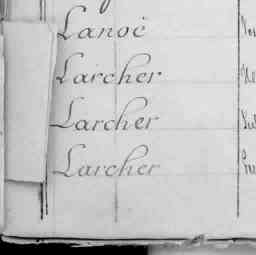 Lanoë
Larcher
Larcher
Larcher